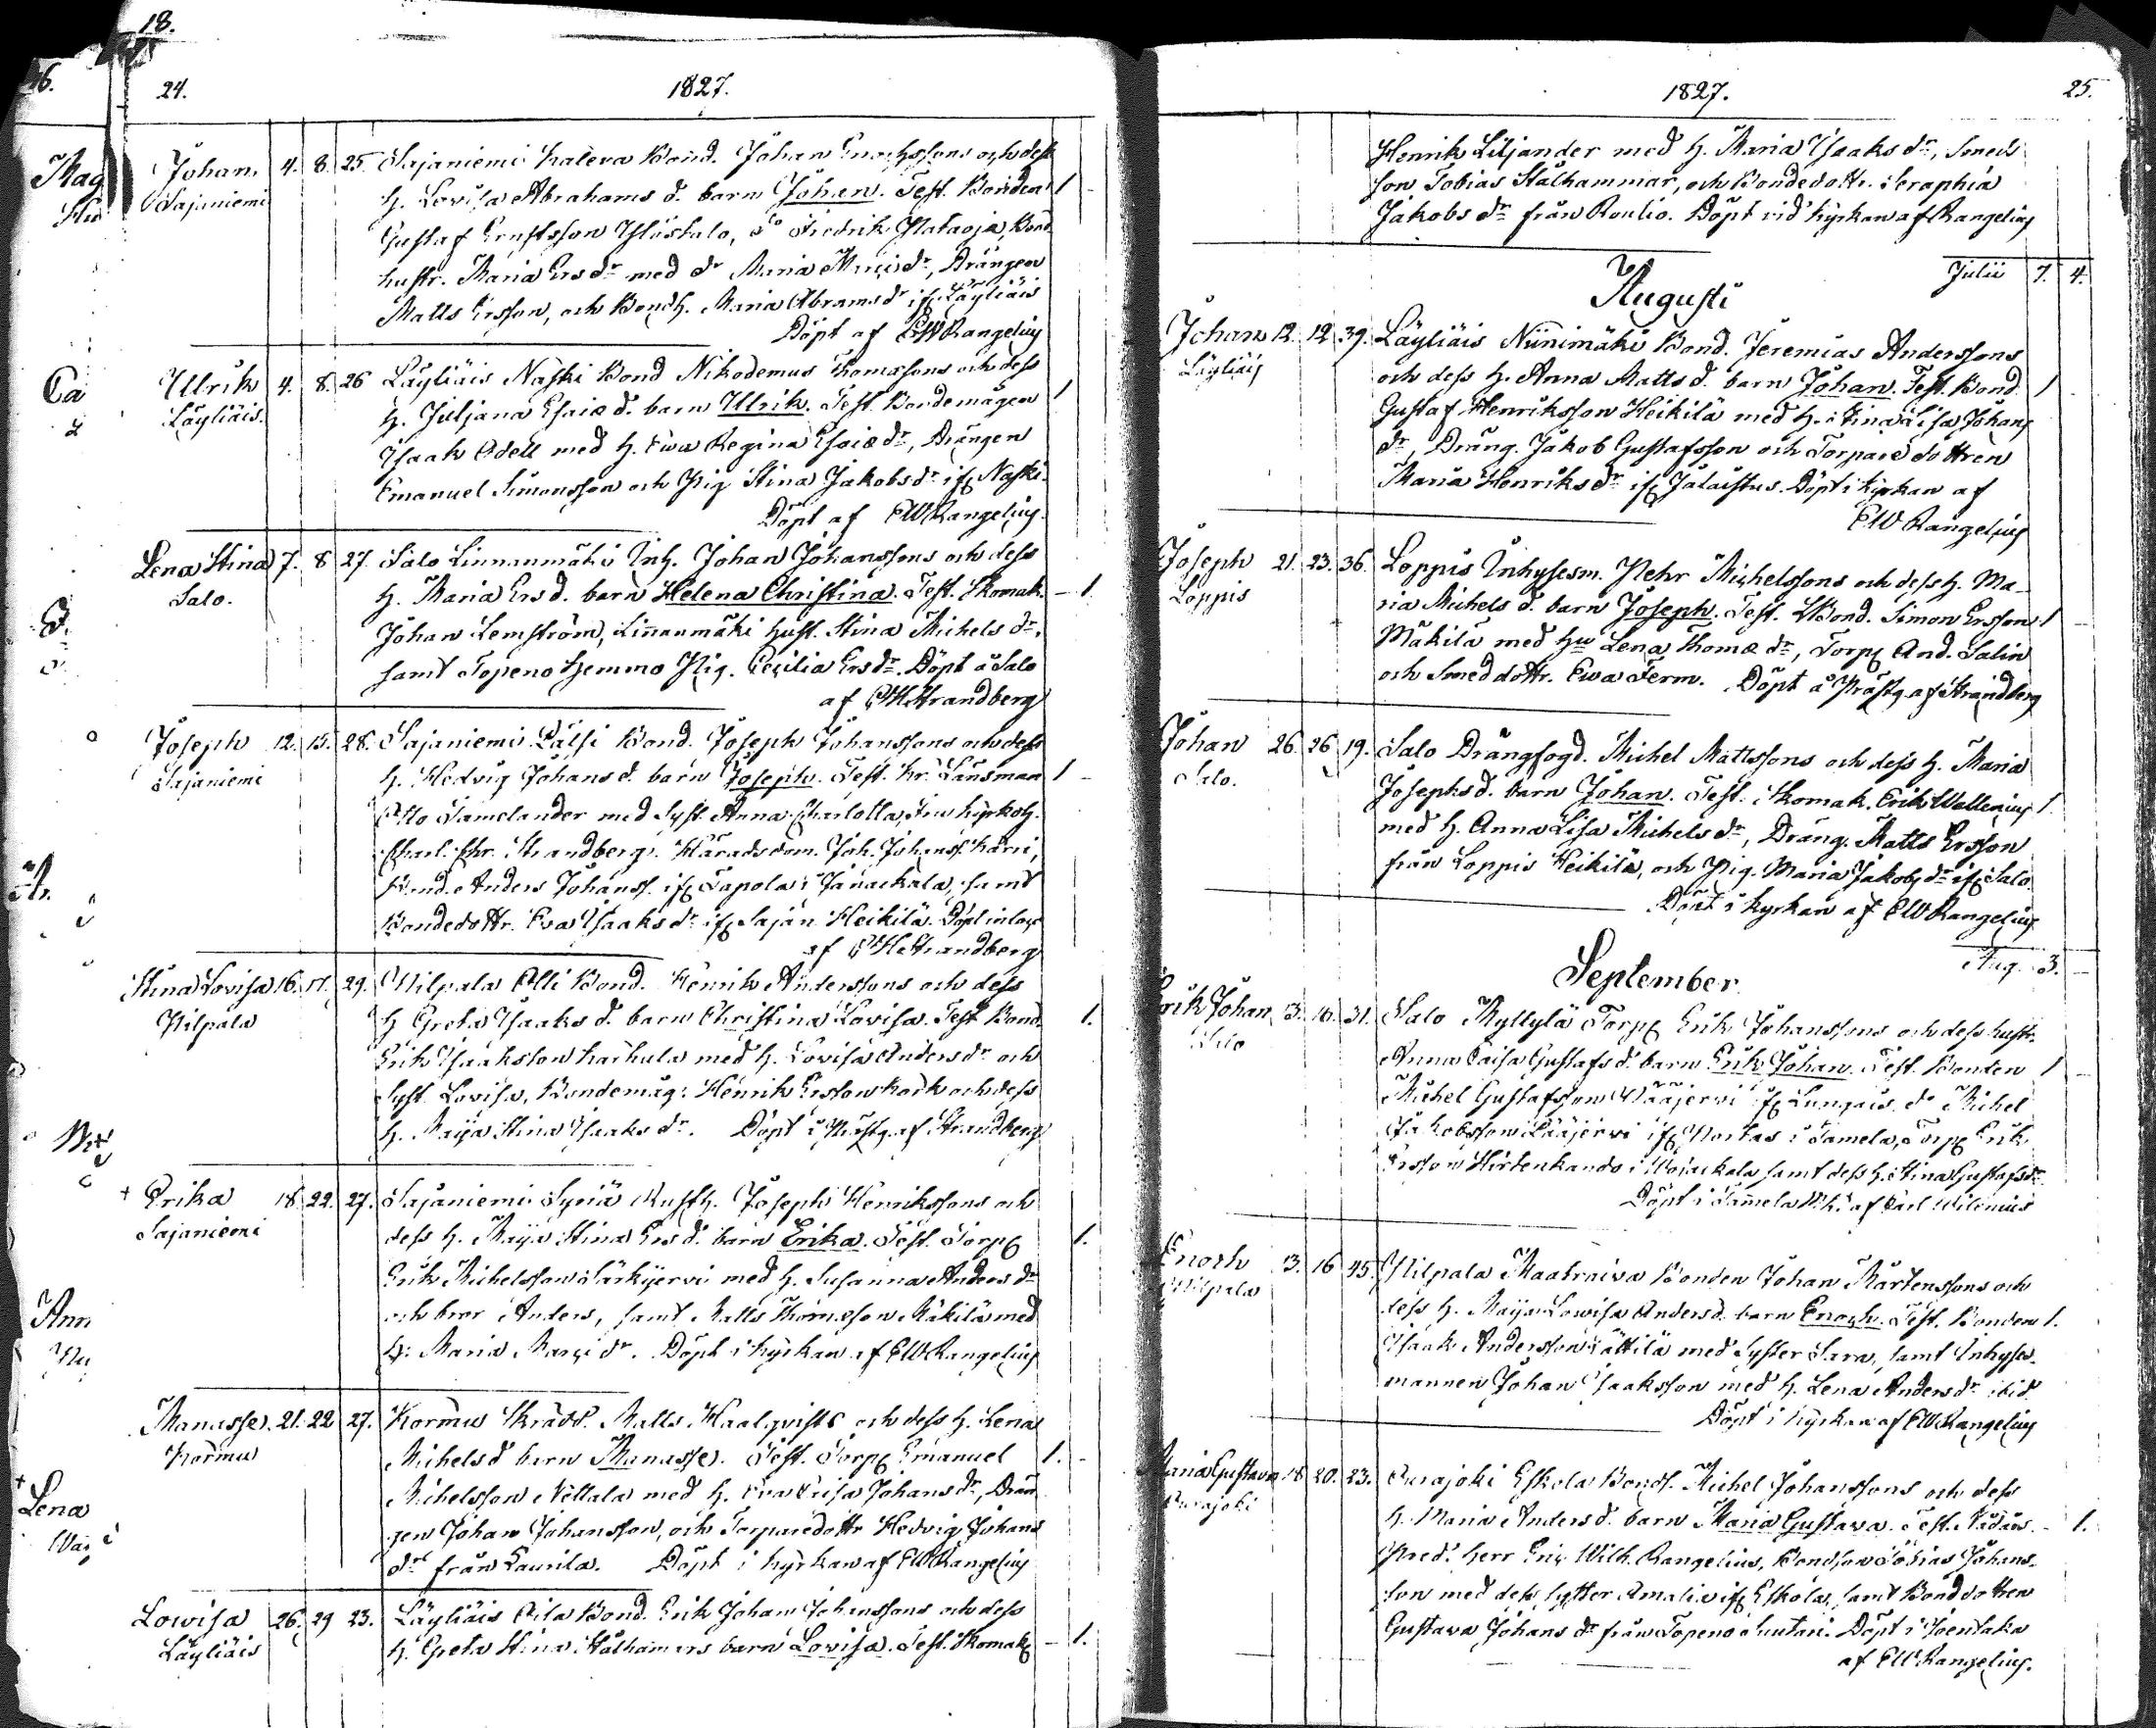 18.
24.
1827.
Johan 4. 8. 25. Sajaniemi Kaleva Bond. Johan Enochssons och dess
Sajaniemi
h. Lovisa Abrahams d. barn Johan. Test. Bonden 1
Gustaf Ernstsson Ylöstalo, do Fredrik Hataoja, Bond
hustr. Maria Ers dr med dr Maria dr, Drängen
Matts Ersson, och Bondh. Maria Abrams dr if Läyliäis
Döpt af EWRangelius
Ullrik 4. 8. 26 Läyliäis Naski Bond Nikodemus Thomassons och dess
Läyliäis.
h. Juljana Esaiæ d. barn Ullrik. Test. Bondemågen 1
Isaak Odell med h. Ewa Regina Esaiæ dr, Drängen
Emanuel Simonsson och Pig Stina Jakobs dr if Naski.
Döpt af EWRangelius.
Lena Stina 7. 8 27. Salo Linnanmäki Inh. Johan Johanssons och dess
Salo.
h. Maria Ers d. barn Helena Christina. Test. Skomak. – 1.
Johan Lemström, Linnanmäki hust. Stina Michels dr,
samt Topeno Hemmo Pig. Cecilia Ers dr. Döpt å Salo
af Strandberg
Joseph 12. 15. 28. Sajaniemi Pälsi Bond. Joseph Johanssons och dess
Sajaniemi
h. Hedvig Johans d. barn Joseph. Test. Kr. Länsman 1 –
Otto Tamelander med Syst. Anna Charlotta, Fru Kyrkoh.
Charl. Chr. Strandberg. Häradsdom. Joh. Johanss. Kärri,
Bond. Anders Johanss. if Tapola i Janackala, samt
Bondedottr. Eva Isaaks dr if Sajan. Heikilä. Döpt
af Strandberg
Stina Lovisa 16. 17. 29. Hilpala Olli Bond. Henrik Anderssons och dess
Hilpala
h Greta Isaaks d. barn Christina Lovisa. Test Bond. 1.
Erik Isaaksson Karhula med h. Lovisa Anders dr och
Syst. Lovisa, Bondemåg: Henrik Ersson Kork och dess
h. Maija Stina Isaaks dr. Döpt i Prästg. af Strandberg
+ Erika 18. 22. 27. Sajaniemi Syriä Rusth. Joseph Henrikssons och
Sajaniemi
dess h. Maija Stina Ers d. barn Erika. Test. Torp 1.
Erik Michelsson Särkijervi med h. Susanna Anders dr
och bror Anders, samt Matts Thomæson Mäkilä med
h: Maria dr. Döpt i kyrkan af EWRangelius
Manasse. 21. 22 27. Kormu Skrädd. Matts Haalqvists och dess h. Lena
Kormu
Michels d barn Manasse. Test. Torp Emanuel 1. –
Michelsson Nettala med h. Eva Johans dr, Drän
gen Johan Johansson, och Torparedottr Hedvig Johans
dr från Laurila. Döpt i kyrkan af EWRangelius
Lowisa 26. 29 23. Läyliäis Bond. Erik Johan Johanssons och dess
Läyliäis
h. Greta Stina Stålhamers barn Lovisa. Test. Skomak – 1.
1827. 25.
Henrik Liljander med h. Maria Isaaks dr, Smeds
son Tobias Stålhammar, och Bondedottr. Seraphia
Jakobs dr från Roulio. Döpt vid kyrkan af Rangelius
Julii 7. 4.
Augusti
Johan 12. 12 39. Läyliäis Niinimäki Bond. Jeremias Anderssons
Läyliäis
och dess h. Anna Matts d. barn Johan. Test. Bond. 1
Gustaf Henriksson Heikilä med h. Stina Lisa Johans
dr, Dräng. Jakob Gustafsson och Torparedottren
Maria Henriks dr if Jalaistus. Döpt i kyrkan af
EWRangelius
Joseph 21. 23. 36. Loppis Inhysesm. Pehr Michelssons och dess h. Ma-
Loppis
ria Michels d. barn Joseph. Test. Bond. Simon Ersson 1 –
Mäkilä med hu Lena Thomæ dr, Torp And. Salin
och Smeddottr. Ewa Ferm. Döpt å Prästg. af Strandberg
Johan 26. 26 19. Salo Drängfogd. Michel Mattssons och dess h. Maria
Salo.
Josephs d. barn Johan. Test. Skomak. Erik Wallenius 1.
med h. Anna Lisa Michels dr, Dräng. Matts Ersson
från Loppis Heikilä, och Pig. Maria Jakobs dr if Salo
Döpt i kyrkan af EWRangelius
Aug. 3. –
September
Erik Johan 3. 16. 31. Salo Myllylä Torp Erik Johanssons och dess hustr.
Salo
Anna Caisa Gustafs d. barn Erik Johan. Test. Bonden 1 –
Michel Gustafsson Wääjervi if Lunzais, do Michel
Jakobsson Lääjervi if Portas i Tamela, Torp Erik
Ersson Hirtenkando i samt dess h. Stina Gustafs dr
Döpt i Tamela af Carl Wilenius
Enoch 13. 16 45. Hilpala Maatraiva Bonden Johan Mårtenssons och
Hilpala
dess h. Maija Lowisa Anders d. barn Enoch. Test. Bonden 1.
Isaak Andersson Lättilä med Syster Sara, samt Inhyses-
mannen Johan Isaaksson med h. Lena Anders dr ibid.
Döpt i kyrkan af EWRangelius
Maria Gustava 18 20. 23. Ourajoki Eskola Bonds. Michel Johanssons och dess
Ourajoki
h. Maria Anders d. barn Maria Gustava. Test. – 1.
Pred. Herr Eric Wilh. Rangelius, Bondson Tobias Johans-
son med dess syster Amalia if Eskola, samt Bonddottren
Gustava Johans dr från Topeno Suutari. Döpt i Joentaka
af EWRangelius.